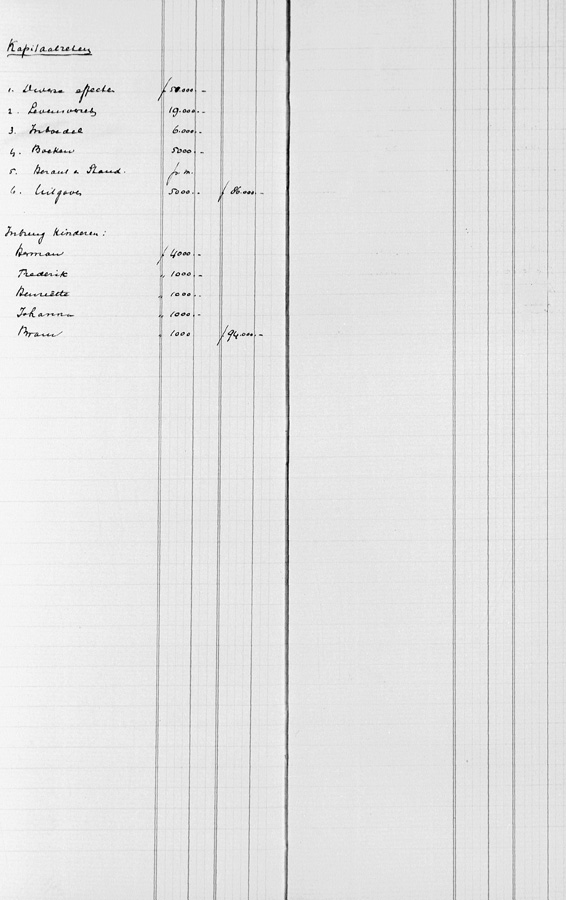 Kapitaalreken
1. Diverse effecten f 51.000.-
2. Levensverz 19.000.-
3. Inboedel 6.000.-
4. Boeken 5000.-
5. Heraut en Stand. p. m.
6. Uitgaven 5000.- f 86.000.-
Inbreng kinderen:
Herman f 4000.-
Frederik „ 1000.-
Henriëtte „ 1000.-
Johanna „ 1000.-
Bram „ 1000 f 94.000.-